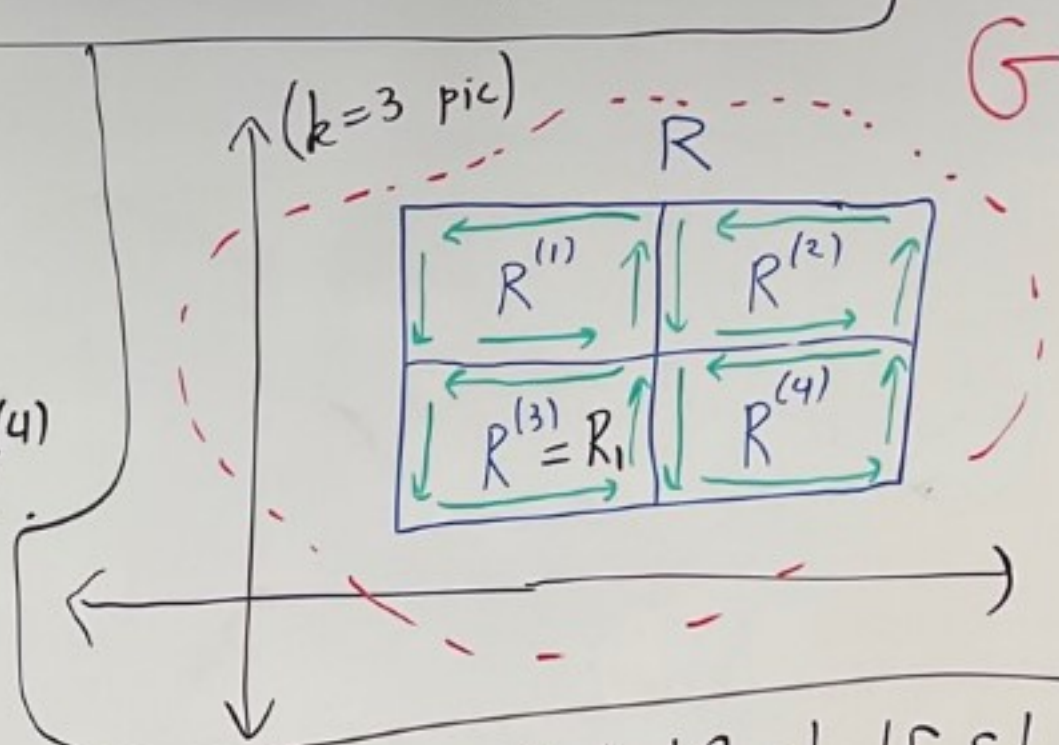 (k=3 pic)
G
R
R^(1)
R^(2)
(4)
R^(3) = R_1
R^(4)